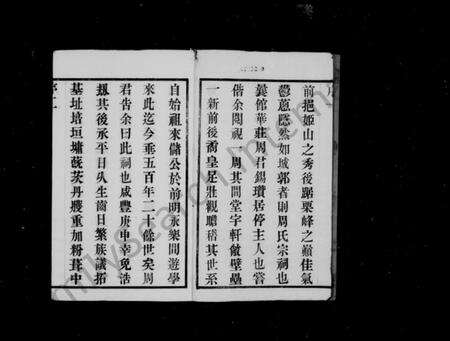 前挹姬山之秀後踞栗峰之巔佳氣
鬱蔥隱然如城郭者則周氏宗祠也
館華莊周君錫瓚居停主人也嘗
偕余閱視一周其間堂宇軒敞壁壘
一新前後矞皇足壯觀瞻稽其世系
自始祖來儲公於前明永樂間遊學
來此迄今垂五百年二十餘世矣周
君告余曰此祠也咸豐庚申兵燹
其後承平日久生齒日繁族議拓
基址培垣墉蔽茨丹雘重加粉葺中